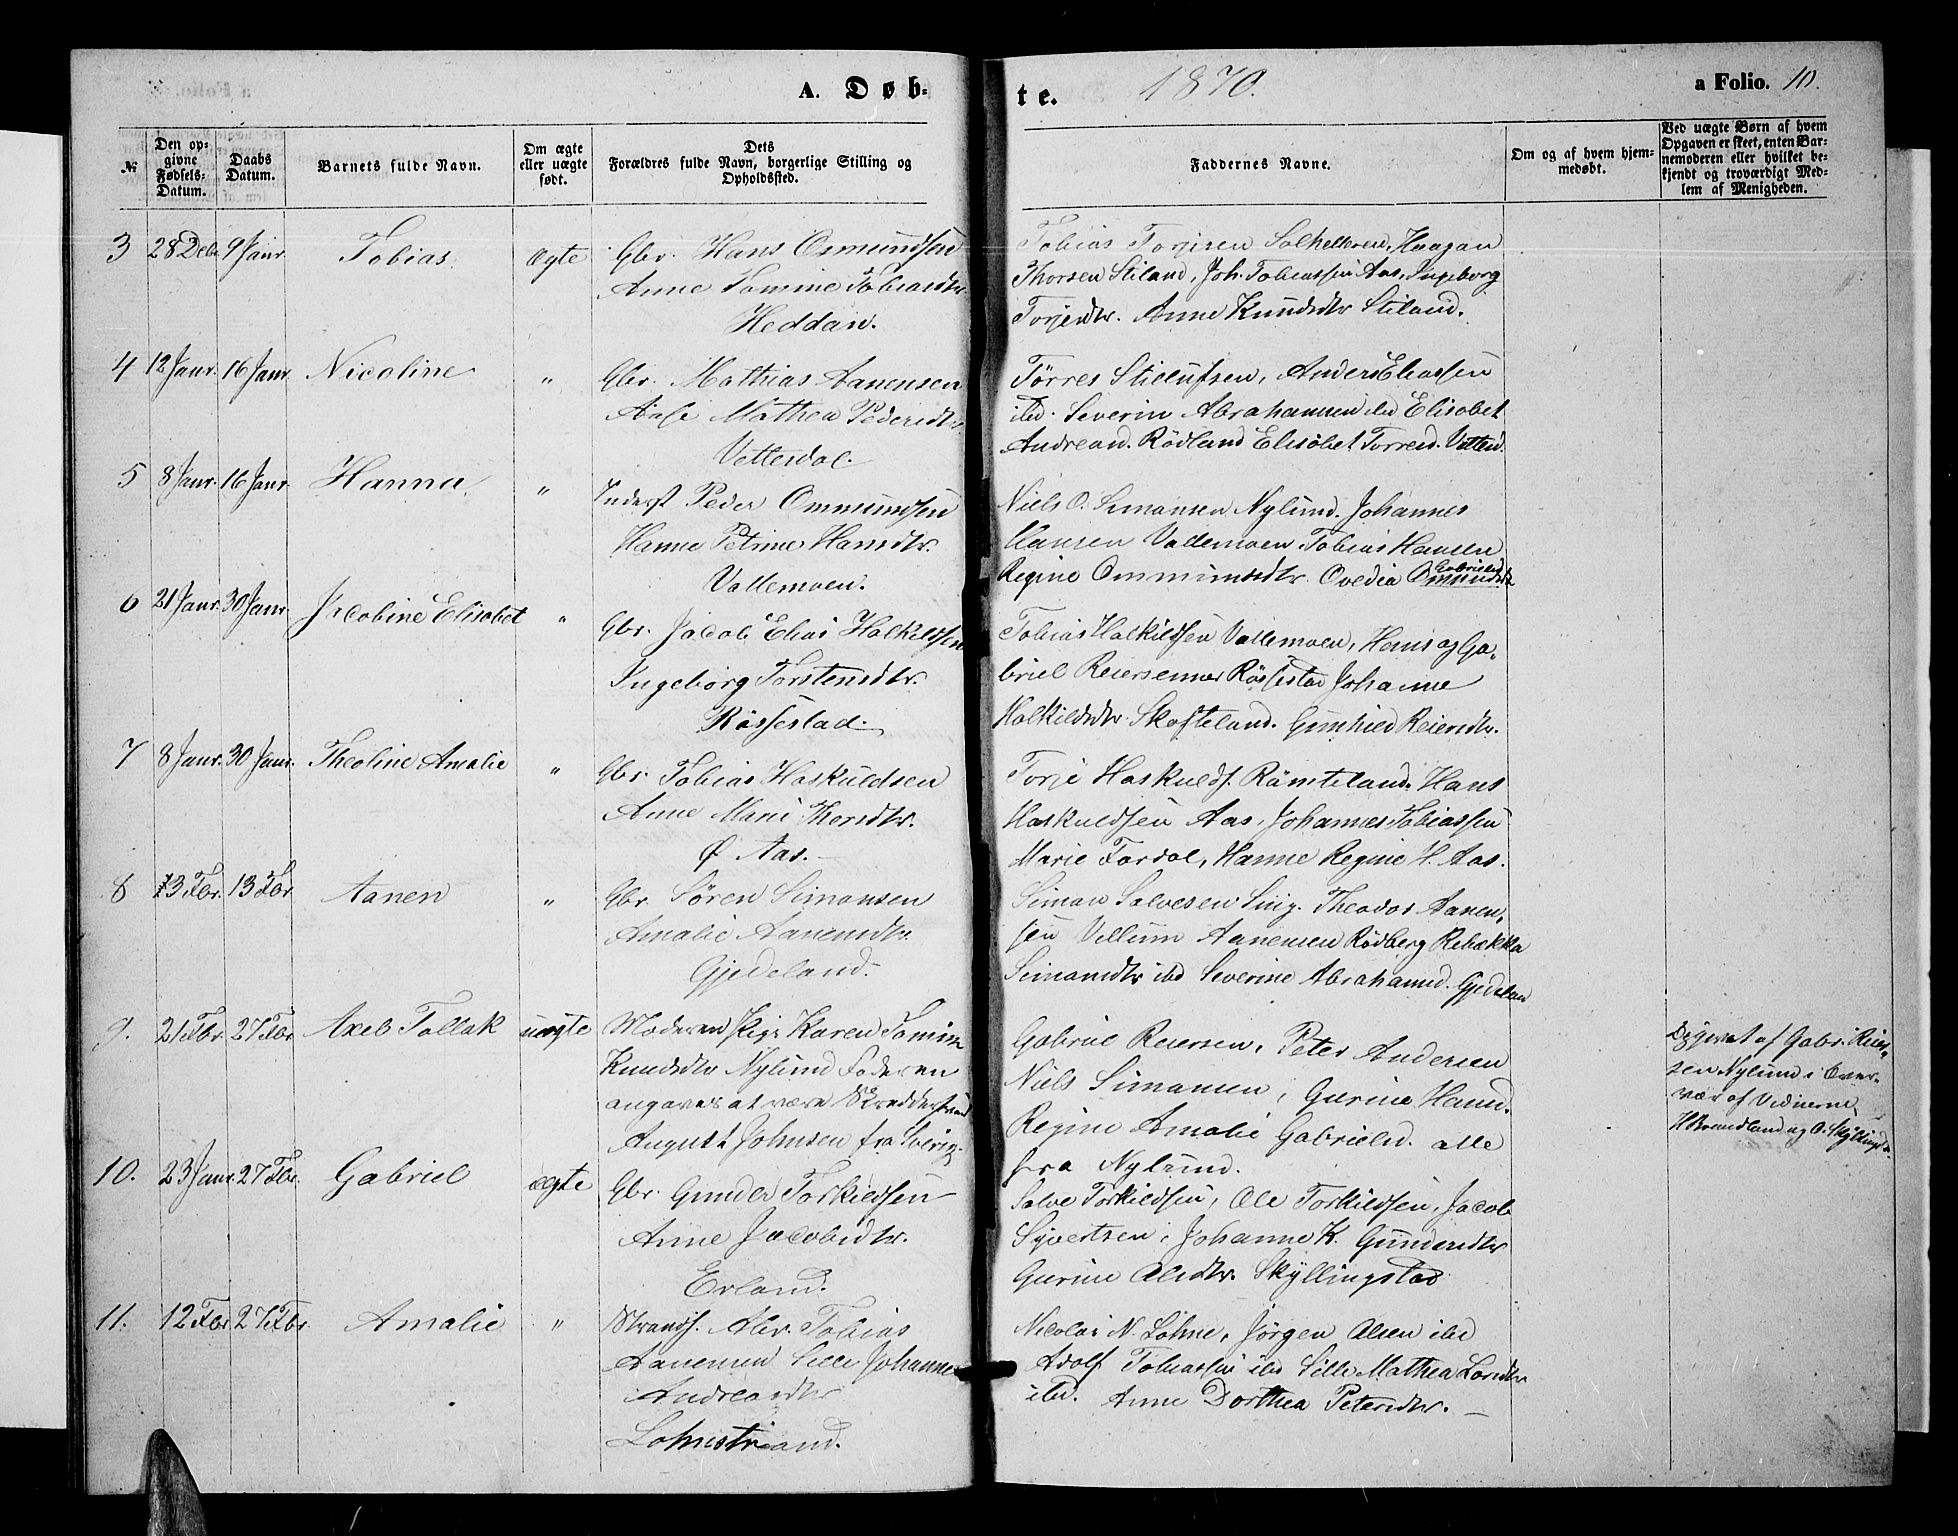 A. Døb-
te. 1870. a Folio. 10.
№
Den opgivne Fødsels-Datum.
Daabs Datum.
Barnets fulde Navn.
Om ægte eller uægte født.
Dets Forældres fulde Navn, borgerlige Stilling og Opholdssted.
Faddernes Navne.
Om og af hvem hjemmedøbt.
Ved uægte Børn af hvem Opgaven er skeet, enten Barnemoderen eller hvilket bekjendt og troværdigt Medlem af Menigheden.
3 28 Decbr 9 Janr. Tobias. ægte Gbr. Hans Osmundsen
Anne Tomine Tobiasdtr.
Heddan.
Tobias Torjesen Haagan
Thorsen Stiland, Joh. Tobiassen Aas, Ingeborg
Torjesdtr. Anne Knudsdtr Stiland.
4 12 Janr. 16 Janr. Nicoline " Gbr. Mathias Aanensen
Aase Mathea Pedersdtr.
Vetterdal.
Tørres Anders Eliassen
ibd. Severin Abrahamsen ibd Elisabet
Andread. Rödland Elisabet Torresd.
5 8 Janr. 16 Janr. Hanna " Inderst Peder Ommundsen
Hanne Petrine Hansdtr.
Vallemoen.
Niels O. Simonsen Nylund. Johannes
Hansen Vallemoen Tobias Hansen
Regine Ommundsdtr. Ovedia Omundsdtr
Gabrielsd
6 21 Janr. 30 Janr. Jacobine Elisabet " Gbr. Jacob Elias Halkildsen
Ingeborg Torstensdtr.
Røssestad.
Tobias Halkildsen Vallemoen, Hans og Ga-
briel Reiersenner Røssestad Johanne
Halkildsdtr Skofteland. Gunhild Reiersdtr.
7 8 Janr. 30 Janr. Theoline Amalie " Gbr. Tobias Haskuldsen
Anne Marie Thorsdtr.
Ø Aas.
Torje Haskulds. Rømteland. Hans
Haskuldsen Aas, Johannes Tobiassen
Marie Fardal, Hanne Regine H. Aas.
8 13 Fbr. 13 Fbr. Aanen " Gbr. Søren Simonsen
Amalie Aanensdtr.
Gjedeland.
Simon Salvesen Sing. Theodor Aanen-
sen Villum Aanensen Rödberg Rebækka
Simonsdtr ibd Severine Abrahamsd. Gjedelan
9. 21 Fbr. 27 Fbr. Axel Tallak uægte Moderen Pige Karen Tomine
Knudsdtr Nylund Faderen
angaves at være Skreddersvend
August Johnsen fra Sverig.
Gabriel Reiersen, Peter Andersen
Niels Simonsen, Gurine Hansd.
Regine Amalie Gabrielsd. alle
fra Nylund.
Opgivet af Gabr. Reier-
sen Nylund i Over-
vær af Vidnerne
H. Brandland og O. Skyllingsd.
10. 23 Janr. 27 Fbr. Gabriel ægte Gbr. Gunder Torkildsen
Anne Jacobsdtr.
Erland.
Salve Torkildsen, Ole Torkildsen, Jacob
Syvertsen, Johanne K. Gundersdtr
Gurine Olsdtr. Skyllingstad
11. 12 Fbr. 27 Fbr. Amalie " Strands. Abr. Tobias
Aanensen Sille Johanne
Andreasdtr
Lohnestrand.
Nicolai N. Lohne, Jörgen Olsen ibd
Adolf Tobiassen ibd Sille Mathea Larsdtr
ibd. Anne Dorthea Petersdtr.